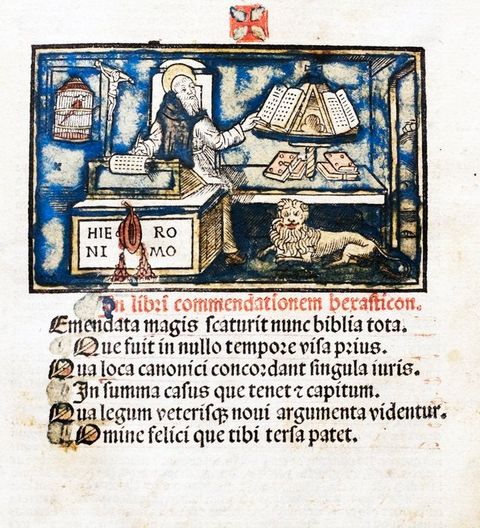 HIE RO
NI MO
In libri commendationem hexasticon.
Emendata magis scaturit nunc biblia tota.
Que fuit in nullo tempore visa prius.
Qua loca canonici concordant singula iuris.
In summa casus que tenet ⁊ capitum.
Qua legum veterisqꝫ noui argumenta videntur.
Omine felici que tibi tersa patet.